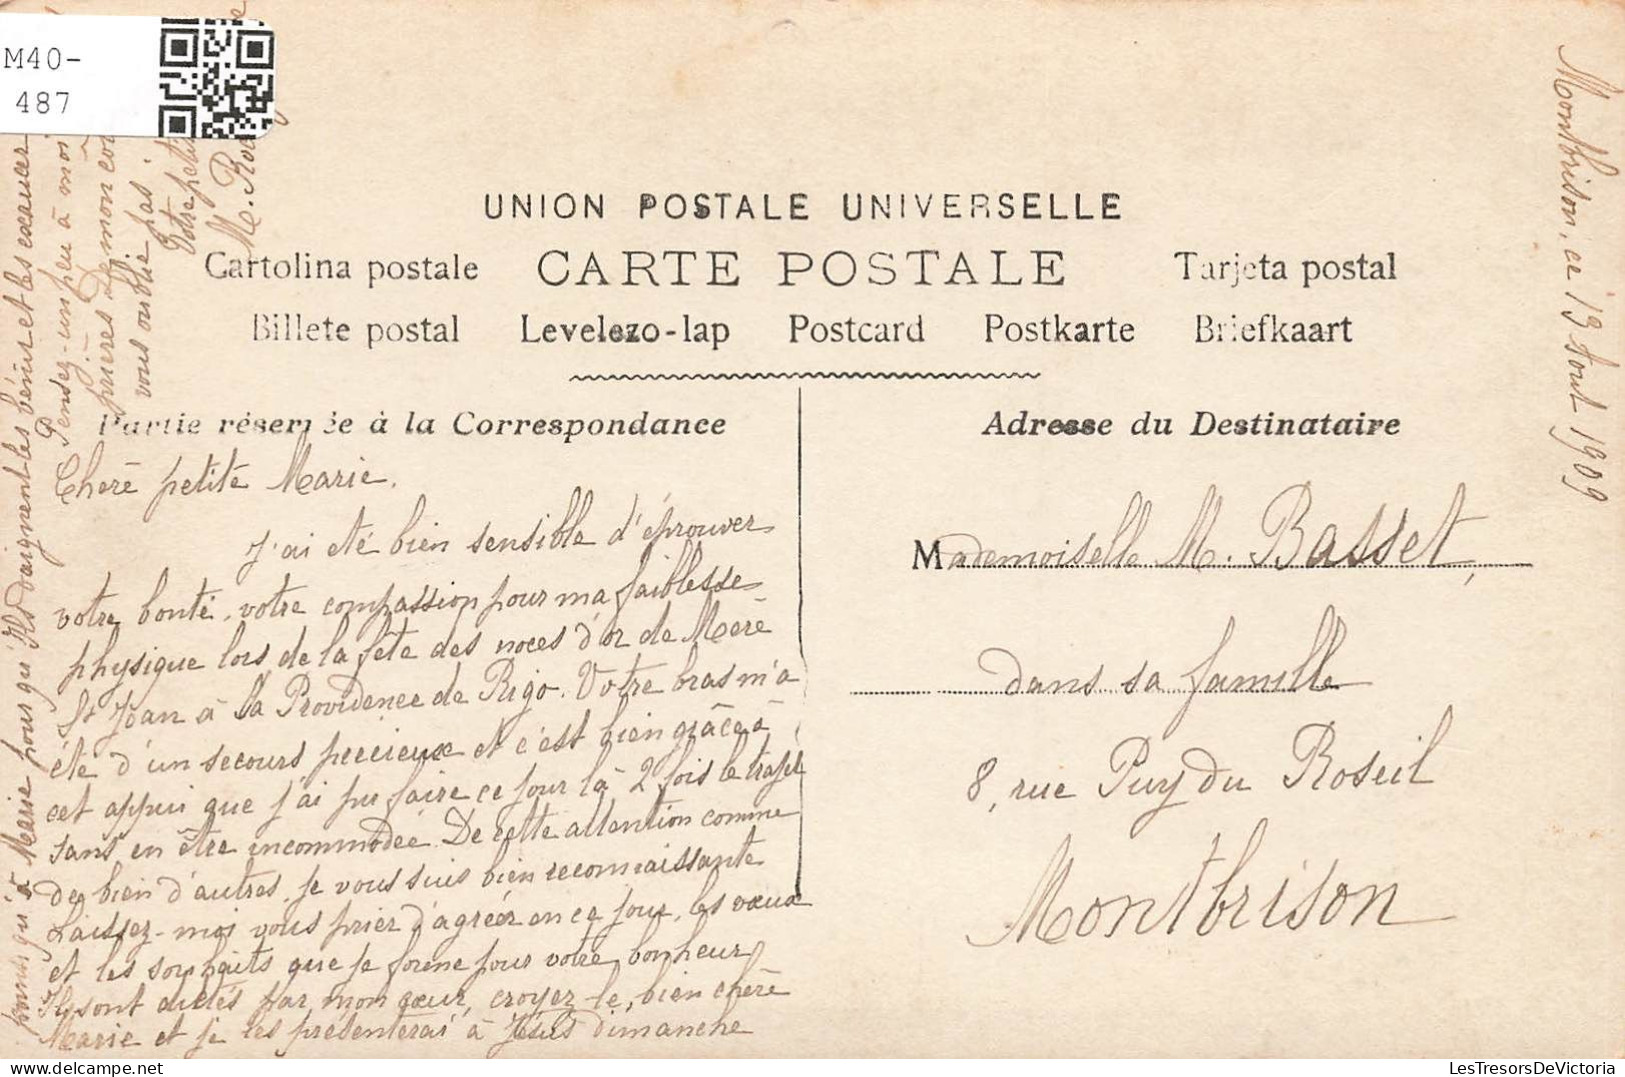 M40-
487
UNION POSTALE UNIVERSELLE
Cartolina postale CARTE POSTALE Tarjeta postal
Billete postal Levelezo-lap Postcard Postkarte Briefkaart
Partie réservée à la Correspondance
Adresse du Destinataire
Montbrison, ce 13 août 1909
Chère petite Marie.
J'ai été bien sensible d'éprouver
votre bonté, votre compassion pour ma faiblesse
physique lors de la fête des noces d'or de Mère
St Jean à la Providence de Rigo. Votre bras m'a
été d'un secours précieux et c'est bien grâce à
cet appui que j'ai pu faire ce jour là 2 fois le trajet
sans en être incommodée. De cette attention comme
de bien d'autres, je vous suis bien reconnaissante
Laissez-moi vous prier d'agréer en ce jour, les vœux
et les souhaits que je forme pour votre bonheur
Ils sont dictés par mon cœur, croyez-le, bien chère
Marie et je les présenterai à Jésus dimanche
qu'à Marie pour qu'Ils daignent les bénir et les exaucer
Pensez un peu à moi
prières de mon
vous oublie pas.
Votre petite
M.
Mademoiselle M. Basset,
dans sa famille
8, rue Puy du Roseil
Montbrison
LesTresorsDeVictoria